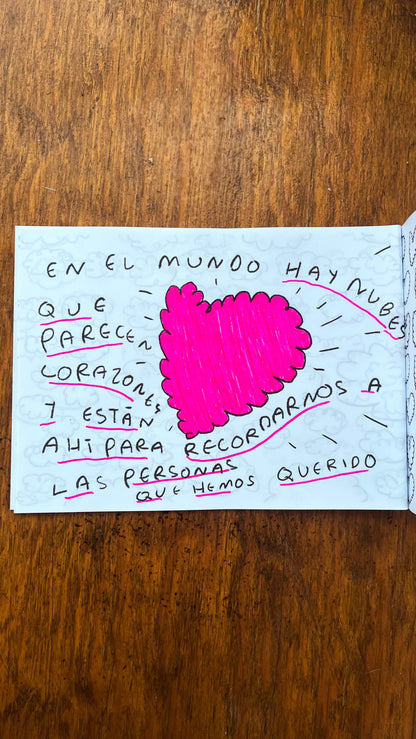 EN EL MUNDO HAY NUBES
QUE
PARECEN
CORAZONES
Y ESTÁN
AHÍ PARA RECORDARNOS A
LAS PERSONAS
QUE HEMOS QUERIDO